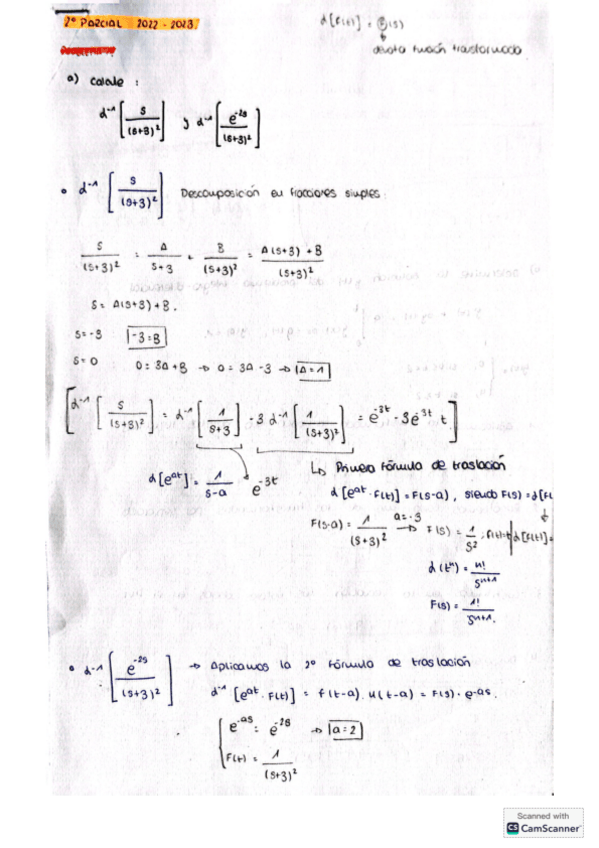 2º PARCIAL 2022 - 2023
d[f(t)] = F(s)
denota función transformada
a) Calcule :
d⁻¹[s/(s+3)²] y d⁻¹[e⁻²ˢ/(s+3)²]
• d⁻¹[s/(s+3)²] Descomposición en fracciones simples:
s/(s+3)² = A/(s+3) + B/(s+3)² = (A(s+3) + B)/(s+3)²
s = A(s+3) + B.
s=-3 -3=B
s=0 0 = 3A + B → 0 = 3A - 3 → A = 1
[d⁻¹[s/(s+3)²] = d⁻¹[1/(s+3)] - 3 d⁻¹[1/(s+3)²] = e⁻³ᵗ - 3e⁻³ᵗ t]
d[eᵃᵗ] = 1/(s-a) e⁻³ᵗ
↳ Primera fórmula de traslación
d[eᵃᵗ · F(t)] = F(s-a), siendo F(s) = d[F(
F(s-a) = 1/(s+3)² a=-3 → F(s) = 1/s² , f(t)=t d[f(t)] =
d(tⁿ) = n!/sⁿ⁺¹
F(s) = 1!/sⁿ⁺¹.
• d⁻¹[e⁻²ˢ/(s+3)²] → Aplicamos la 2º fórmula de traslación
d⁻¹[eᵃᵗ · F(t)] = f(t-a) · u(t-a) = F(s) · e⁻ᵃˢ.
e⁻ᵃˢ = e⁻²ˢ → a=2
F(t) = 1/(s+3)²
Scanned with
CS CamScanner